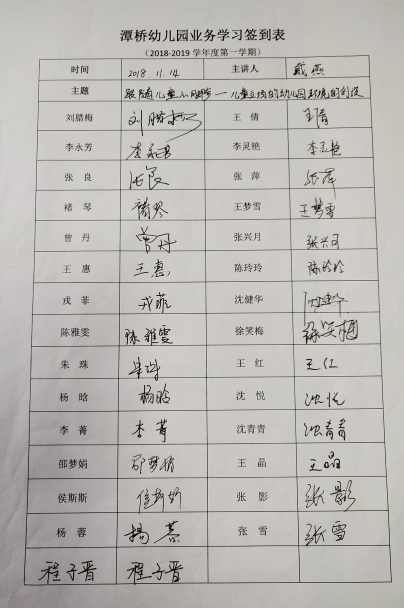 潭桥幼儿园业务学习签到表
（2018-2019 学年度第一学期）
时间 2018. 11. 14 主讲人 戴燕
主题 跟随儿童的脚步——儿童立场的幼儿园环境的创设
刘腊梅 刘腊梅 王倩 王倩
李永芳 李永芳 李灵艳 李灵艳
张良 张良 张萍 张萍
褚琴 褚琴 王梦雪 王梦雪
曾丹 曾丹 张兴月 张兴月
王惠 王惠 陈玲玲 陈玲玲
戎菲 戎菲 沈健华 沈健华
陈雅雯 陈雅雯 徐笑梅 徐笑梅
朱珠 朱珠 王红 王红
杨晗 杨晗 沈悦 沈悦
李菁 李菁 沈青青 沈青青
邵梦娟 邵梦娟 王晶 王晶
侯斯斯 侯斯斯 张影 张影
杨蓉 杨蓉 张雪 张雪
程子晋 程子晋